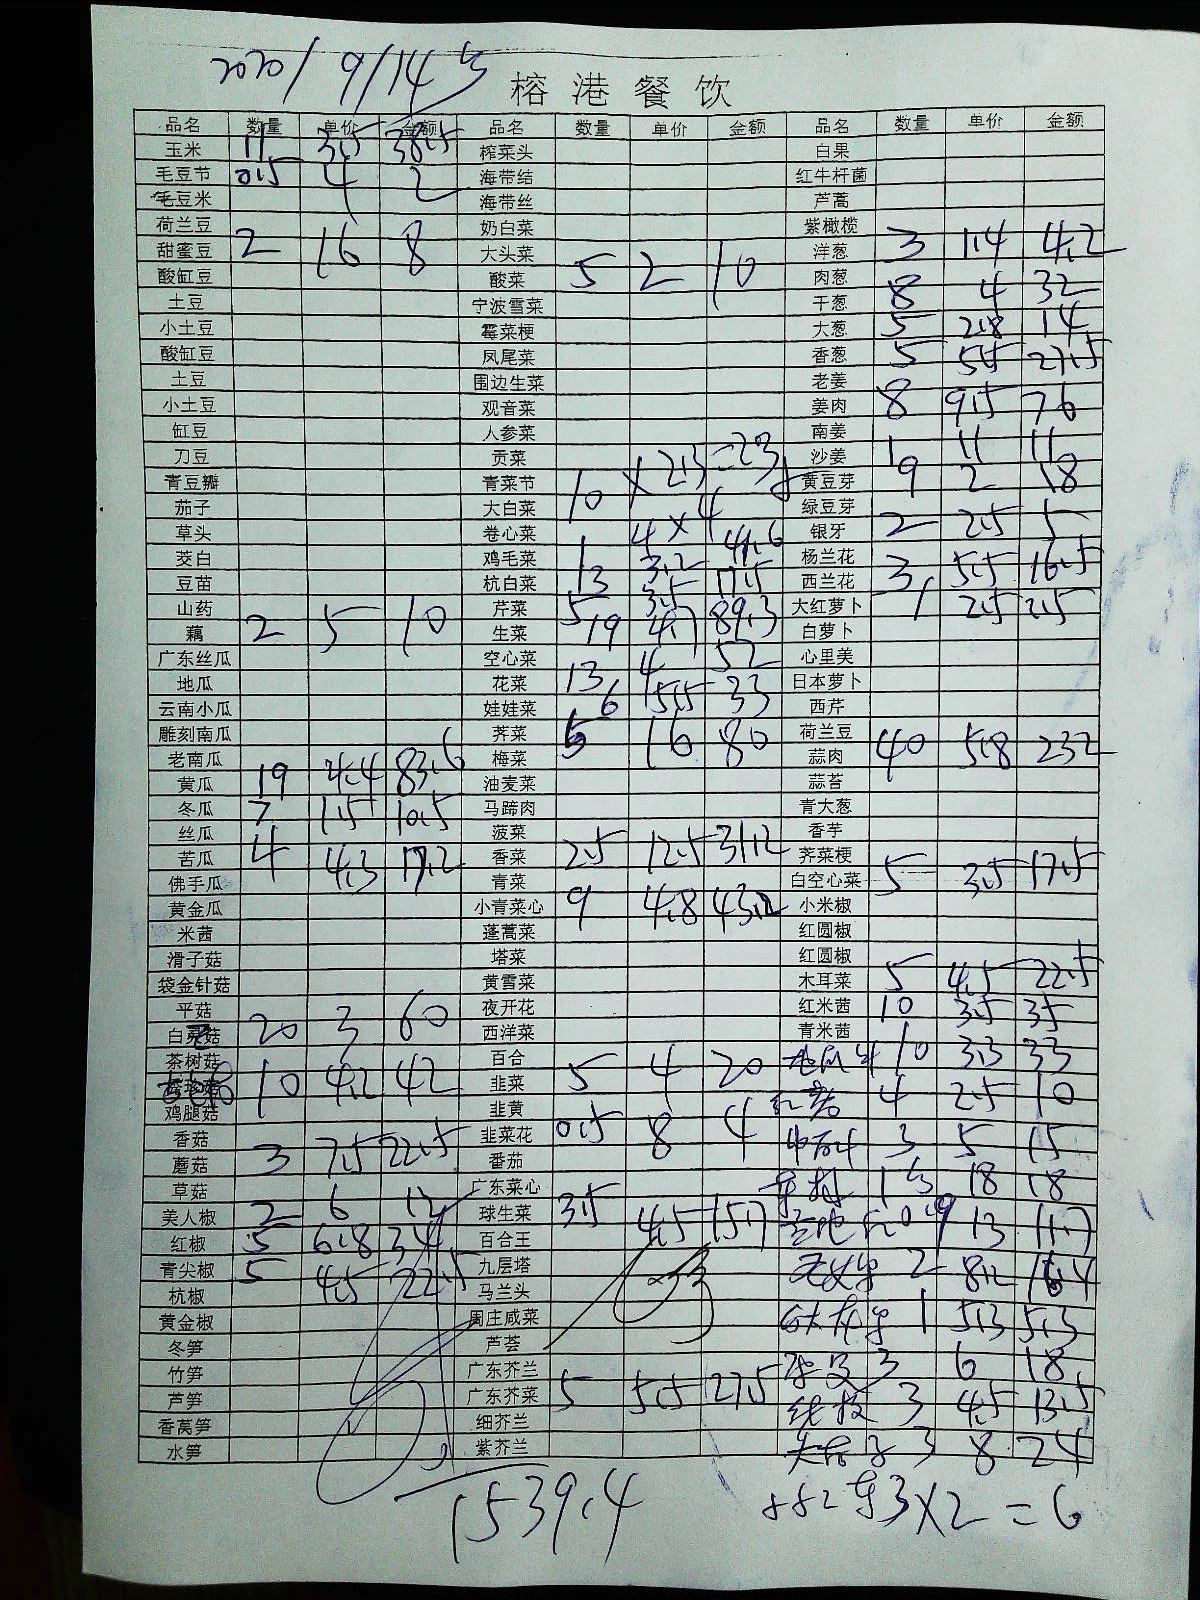 2020/9/14
榕港餐饮
品名 数量 单价 金额 品名 数量 单价 金额 品名 数量 单价 金额
玉米 11 3.5 38.5 榨菜头 白果
毛豆节 0.5 4 2 海带结 红牛杆菌
毛豆米 海带丝 芦蒿
荷兰豆 奶白菜 紫橄榄
甜蜜豆 2 16 8 大头菜 洋葱 3 1.4 4.2
酸缸豆 酸菜 5 2 10 肉葱
土豆 宁波雪菜 干葱 8 4 32
小土豆 霉菜梗 大葱 5 2.8 14
酸缸豆 凤尾菜 香葱 5 5.5 27.5
土豆 围边生菜 老姜
小土豆 观音菜 姜肉 8 9.5 76
缸豆 人参菜 南姜
刀豆 贡菜 沙姜 1 11 11
青豆瓣 青菜节 10 × 2.3 = 23 黄豆芽 9 2 18
茄子 大白菜 绿豆芽
草头 卷心菜 4 × 4 银牙 2 2.5 5
茭白 鸡毛菜 13 3.2 41.6 杨兰花
豆苗 杭白菜 西兰花 3 5.5 16.5
山药 芹菜 5 3.5 17.5 大红萝卜 1 2.5 2.5
藕 2 5 10 生菜 19 4.7 89.3 白萝卜
广东丝瓜 空心菜 13 4 52 心里美
地瓜 花菜 日本萝卜
云南小瓜 娃娃菜 6 5.5 33 西芹
雕刻南瓜 荠菜 5 16 80 荷兰豆
老南瓜 梅菜 蒜肉 40 5.8 232
黄瓜 19 4.4 83.6 油麦菜 蒜苔
冬瓜 7 1.5 10.5 马蹄肉 青大葱
丝瓜 菠菜 香芋
苦瓜 4 4.3 17.2 香菜 2.5 12.5 31.2 荠菜梗
佛手瓜 青菜 白空心菜 5 3.5 17.5
黄金瓜 小青菜心 9 4.8 43.2 小米椒
米茜 蓬蒿菜 红圆椒
滑子菇 塔菜 红圆椒
袋金针菇 黄雪菜 木耳菜 5 4.5 22.5
平菇 夜开花 红米茜 10 3.5 35
白灵菇 20 3 60 西洋菜 青米茜
茶树菇 百合 10 3.3 33
10 4.2 42 韭菜 5 4 20 红薯 4 2.5 10
鸡腿菇 韭黄
香菇 韭菜花 0.5 8 4 3 5 15
蘑菇 3 7.5 22.5 番茄
草菇 广东菜心 1 18 18
美人椒 2 6 12 球生菜 3.5 4.5 15.7 0.9 13 11.7
红椒 5 6.8 34 百合王
青尖椒 5 4.5 22.5 九层塔 2 8.2 16.4
杭椒 马兰头
黄金椒 周庄咸菜 1 5.3 5.3
冬笋 芦荟
竹笋 广东芥兰 3 6 18
芦笋 广东芥菜 5 5.5 27.5 3 4.5 13.5
香莴笋 细芥兰
水笋 紫芥兰 3 8 24
1539.4
3×2=6